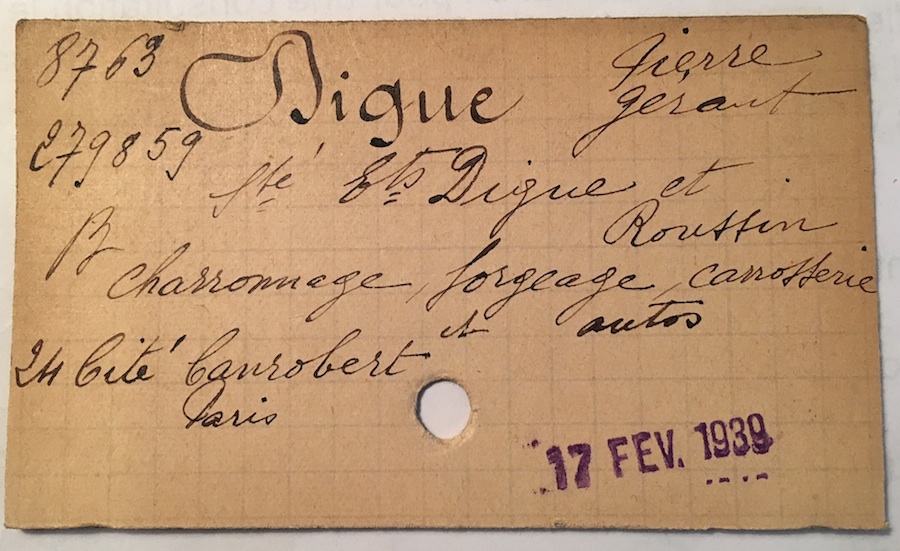 8763 Digue Pierre
gérant
279859
Sté Ets Digue et
Roussin
B
Charronnage, forgeage, carrosserie
et autos
24 Cité Canrobert
Paris
17 FEV. 1939